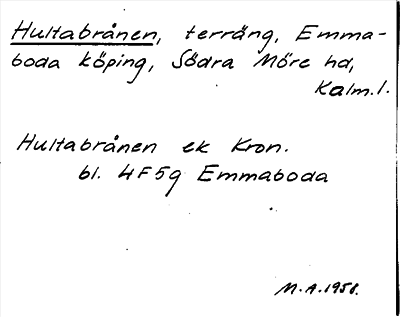 Hultabrånen, terräng, Emma-
boda köping, Södra Möre hd,
Kalm.l.
Hultabrånen ek Kron.
bl. 4F5g Emmaboda
M.A.1958.